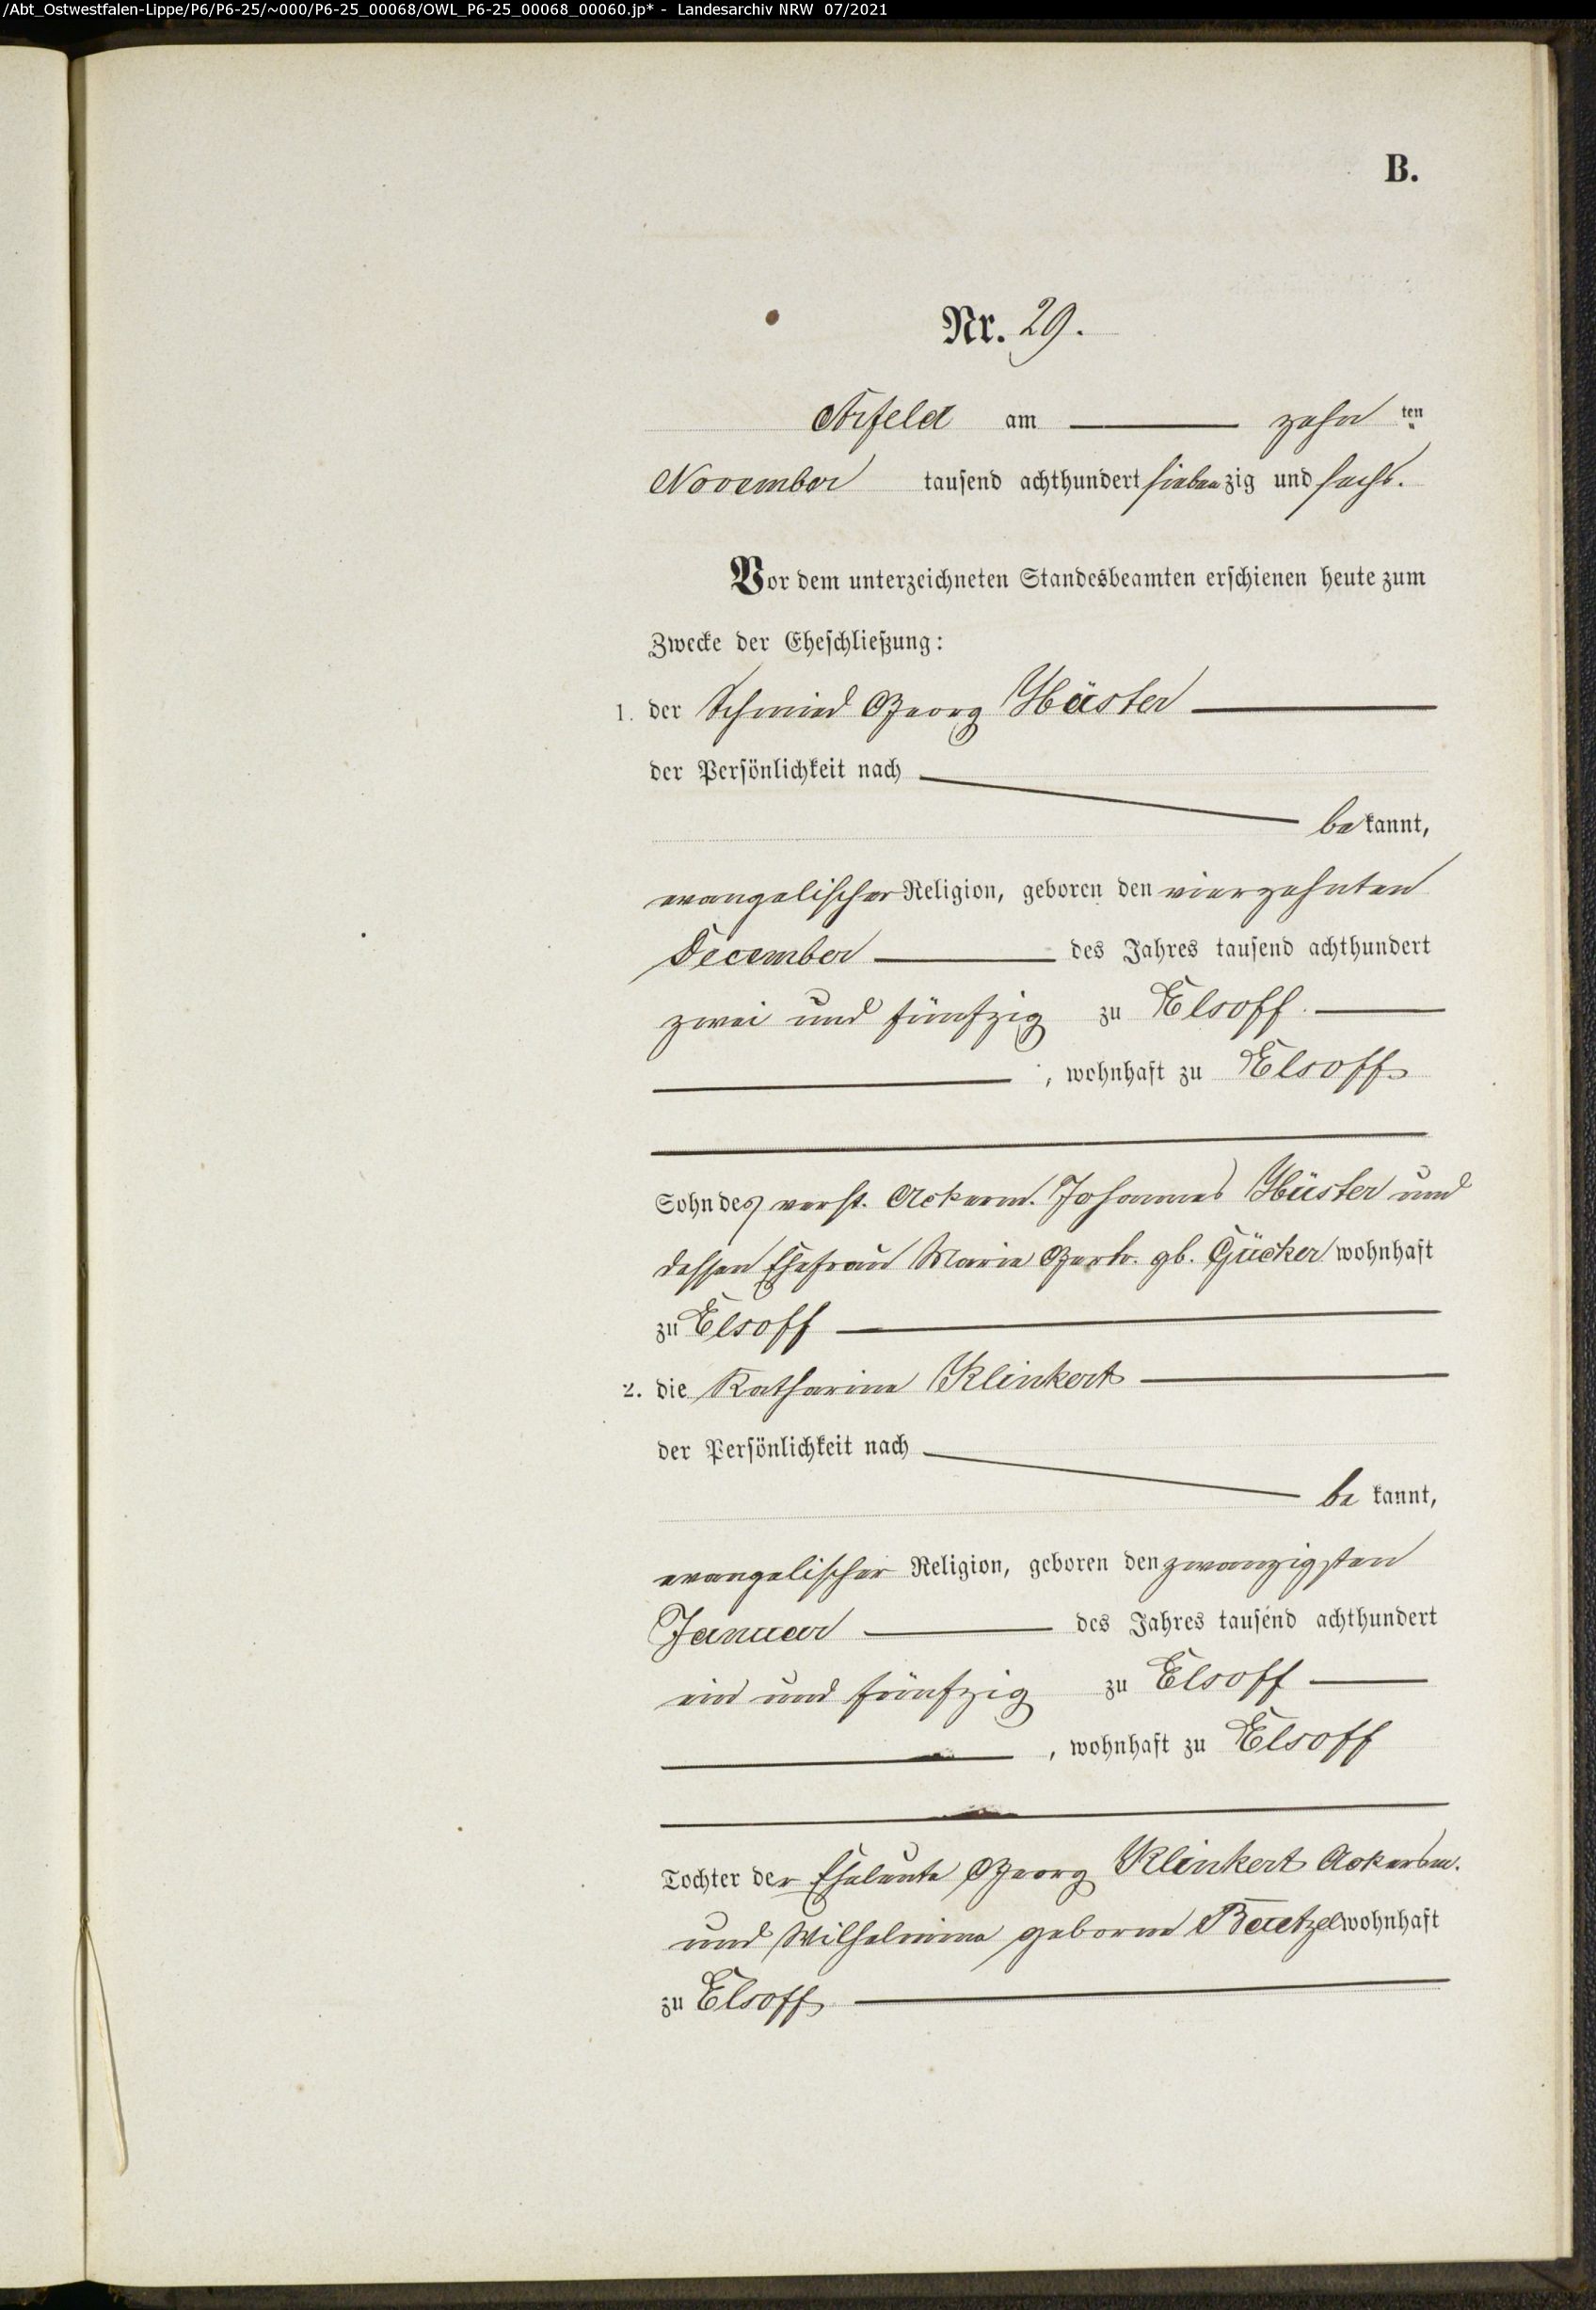 /Abt_Ostwestfalen-Lippe/P6/P6-25/~000/P6-25_00068/OWL_P6-25_00068_00060.jp* - Landesarchiv NRW 07/2021
B.
Nr. 29.
Arfeld am zehn ten
November tausend achthundert siebenzig und sechs.
Vor dem unterzeichneten Standesbeamten erschienen heute zum
Zwecke der Eheschließung:
1. der Schmied Georg Hüster
der Persönlichkeit nach
bekannt,
evangelischer Religion, geboren den vierzehnten
December des Jahres tausend achthundert
zwei und fünfzig zu Elsoff
, wohnhaft zu Elsoff
Sohn des verst. Ackerm. Johannes Hüster und
dessen Ehefrau Marie Gertr. gb. Gücker wohnhaft
zu Elsoff
2. die Katharine Klinkert
der Persönlichkeit nach
be kannt,
evangelischer Religion, geboren den zwanzigsten
Januar des Jahres tausend achthundert
ein und fünfzig zu Elsoff
, wohnhaft zu Elsoff
Tochter der Eheleute Georg Klinkert Ackersm.
und Wilhelmine geborne Baetzel wohnhaft
zu Elsoff